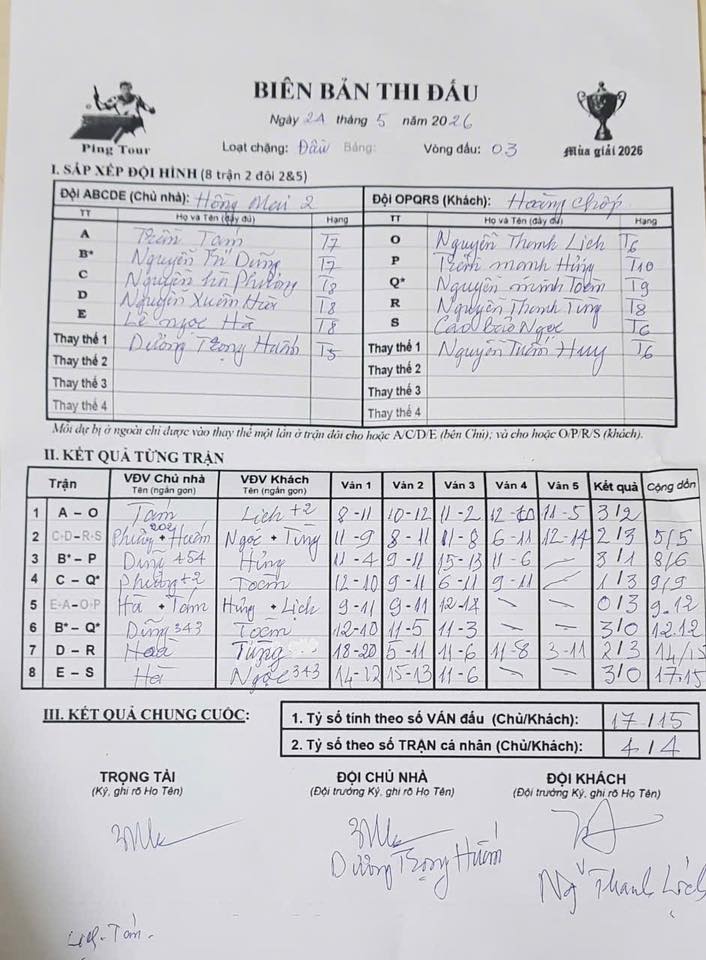 BIÊN BẢN THI ĐẤU
Ngày 24 tháng 5 năm 2026
Ping Tour
Loạt chặng: Đấu Bảng: Vòng đấu: 03
Mùa giải 2026
I. SẮP XẾP ĐỘI HÌNH (8 trận 2 đôi 2&5)
Đội ABCDE (Chủ nhà): Hồng Mai 2 Đội OPQRS (Khách): Hoàng Chóp
TT Họ và Tên (đầy đủ) Hạng TT Họ và Tên (đầy đủ) Hạng
A Trần Tám T7 O Nguyễn Thanh Lịch T6
B* Nguyễn Trí Dũng T7 P Trần Mạnh Hùng T10
C Nguyễn Phương T8 Q* Nguyễn Minh Toàn T9
D Nguyễn Xuân Hoà T8 R Nguyễn Thanh Tùng T8
E Lê Ngọc Hà T8 S Cao Bảo Ngọc T6
Thay thế 1 Dương Trọng Huấn T5 Thay thế 1 Nguyễn Tuấn Huy T6
Thay thế 2 Thay thế 2
Thay thế 3 Thay thế 3
Thay thế 4 Thay thế 4
Mỗi dự bị ở ngoài chỉ được vào thay thế một lần ở trận đôi cho hoặc A/C/D/E (bên Chủ); và cho hoặc O/P/R/S (khách).
II. KẾT QUẢ TỪNG TRẬN
Trận VĐV Chủ nhà Tên (ngắn gọn) VĐV Khách Tên (ngắn gọn) Ván 1 Ván 2 Ván 3 Ván 4 Ván 5 Kết quả Cộng dồn
1 A – O Tám Lịch +2 8-11 10-12 11-2 12-10 11-5 3/2
2 C-D – R-S Phương + Huấn 202 Ngọc + Tùng 11-9 8-11 11-8 6-11 12-14 2/3 5/5
3 B* – P Dũng +54 Hùng 11-4 9-11 15-13 11-6 – 3/1 8/6
4 C – Q* Phương +2 Toàn 12-10 9-11 6-11 9-11 – 1/3 9/9
5 E-A – O-P Hà + Tám Hùng + Lịch 9-11 9-11 12-14 – – 0/3 9.12
6 B* – Q* Dũng 343 Toàn 12-10 11-5 11-3 – – 3/0 12.12
7 D – R Hoà Tùng 18-20 5-11 11-6 11-8 3-11 2/3 14/15
8 E – S Hà Ngọc 343 14-12 15-13 11-6 – – 3/0 17.15
III. KẾT QUẢ CHUNG CUỘC:
1. Tỷ số tính theo số VÁN đấu (Chủ/Khách): 17/15
2. Tỷ số theo số TRẬN cá nhân (Chủ/Khách): 4/4
TRỌNG TÀI ĐỘI CHỦ NHÀ ĐỘI KHÁCH
(Ký, ghi rõ Họ Tên) (Đội trưởng Ký, ghi rõ Họ Tên) (Đội trưởng Ký, ghi rõ Họ Tên)
Dương Trọng Huấn
Ng Thanh Lịch
Lịch - Tám.